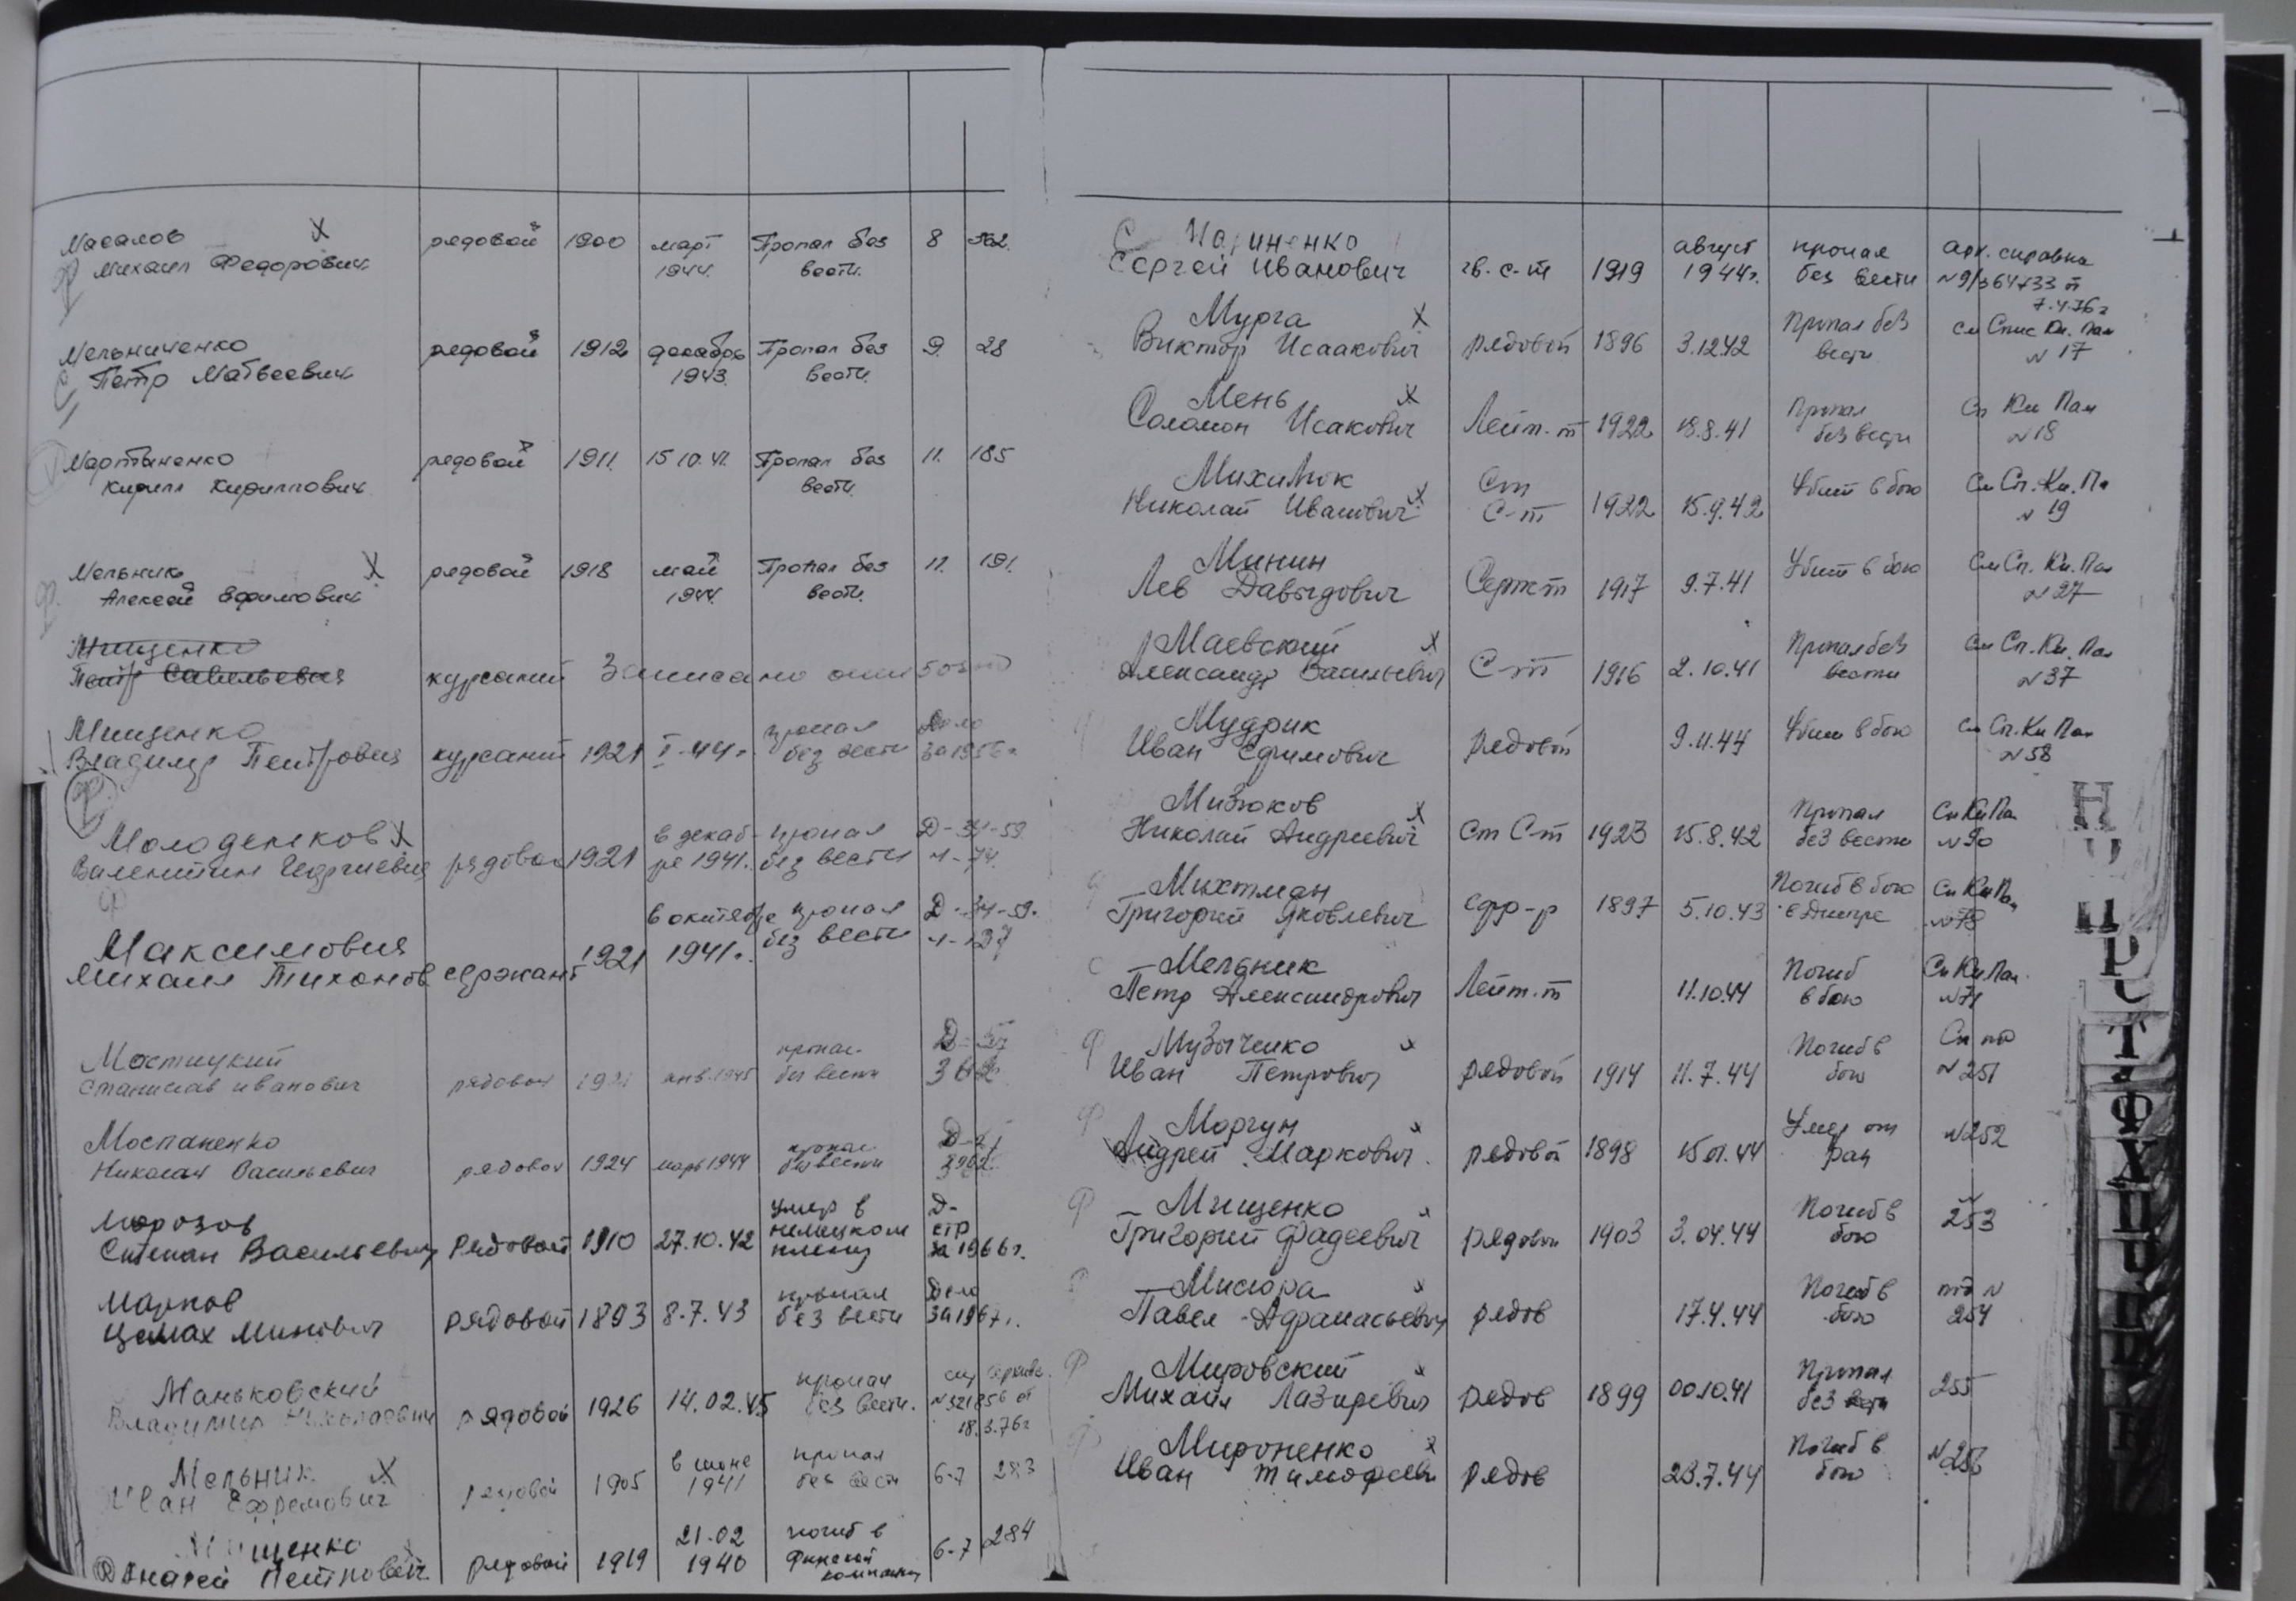 Масалов X рядовой 1900 март Пропал без 8 362.
Ф Михаил Федорович 1944. вести.
Мельниченко рядовой 1912 декабрь Пропал без 9. 28
Петр Матвеевич 1943. вести.
Мартыненко рядовой 1911. 15 10.41. Пропал без 11. 185
Кирилл Кириллович вести.
Мельник X рядовой 1918 май Пропал без 11. 191.
Ф Алексей Ефимович 1944. вести.
Мищенко
Петр Савельевич курсант Записано
Мищенко пропал Дело
Владимир Петрович курсант 1921 I-44г. без вести за 1956г.
Ф
Молоденков X в декаб- пропал Д-34-59.
Валентин Георгиевич рядовой 1921 ре 1941. без вести л-74.
Ф в октябре пропал Д-34-59.
Максимович 1921 1941г. без вести л-137
Михаил Тихонов сержант
Мостицкий пропал
Станислав Иванович рядовой янв.1945 без вести
Моспаненко пропал
Николай Васильевич рядовой 1924 март 1944 без вести
Морозов умер в Д-
Степан Васильевич Рядовой 1910 27.10.42 немецком стр
плену за 1966г.
Марков пропал Дело
Цемах Минович рядовой 1893 8.7.43 без вести за 1967г.
Маньковский пропал
Владимир Николаевич рядовой 1926 14.02.45 без вести. №321856 от
18.3.76г
Мельник X в июне пропал
Иван Ефремович рядовой 1905 1941 без вести 6-7 283
Мищенко 21.02 погиб в
Андрей Петрович рядовой 1919 1940 финской 6-7 284
компании
С август пропал арх. справка
Сергей Иванович гв. с-т 1919 1944г. без вести №9/364733 от
7.4.76г
Мурга X Пропал без см Спис Кн. Пам
Виктор Исаакович рядовой 1896 3.12.42 вести №17
Мень X Пропал Сп Кн Пам
Соломон Исакович Лейт.-т 1922 18.8.41 без вести №18
Михалюк Ст Убит в бою См Сп. Кн. Па
Николай Иванович X С-т 1922 15.9.42 №19
Минин Убит в бою См Сп. Кн. Пам
Лев Давыдович Серж-т 1917 9.7.41 №27
Маевский X Пропал без См Сп. Кн. Пам
Александр Васильевич С-т 1916 2.10.41 вести №37
Мудрик Убит в бою См Сп. Кн Пам
Иван Ефимович рядовой 9.11.44 №58
Мизюков X Пропал Сп Кн Пам
Николай Андреевич Ст С-т 1923 15.8.42 без вести
Михтман Погиб в бою Сп Кн Па
Григорий Яковлевич ефр-р 1897 5.10.43 в Днепре
С Мельник Погиб Сп Кн Пам
Петр Александрович Лейт.-т 11.10.44 в бою №71
Ф Музыченко X Погиб в
Иван Петрович рядовой 1914 11.7.44 бою №251
Ф Моргун X Умер от №252
Андрей Маркович рядовой 1898 15.01.44 ран
Ф Мищенко X Погиб в 253
Григорий Фадеевич рядовой 1903 3.04.44 бою
Мисюра X Погиб в
Павел Афанасьевич рядов 17.4.44 бою 254
Ф Мировский X Пропал 255
Михаил Лазаревич рядов 1899 00.10.41 без вести
Мироненко X Погиб в №256
Иван Тимофеев рядов 23.7.44 бою
Н
Р
С
Т
Ф
Х